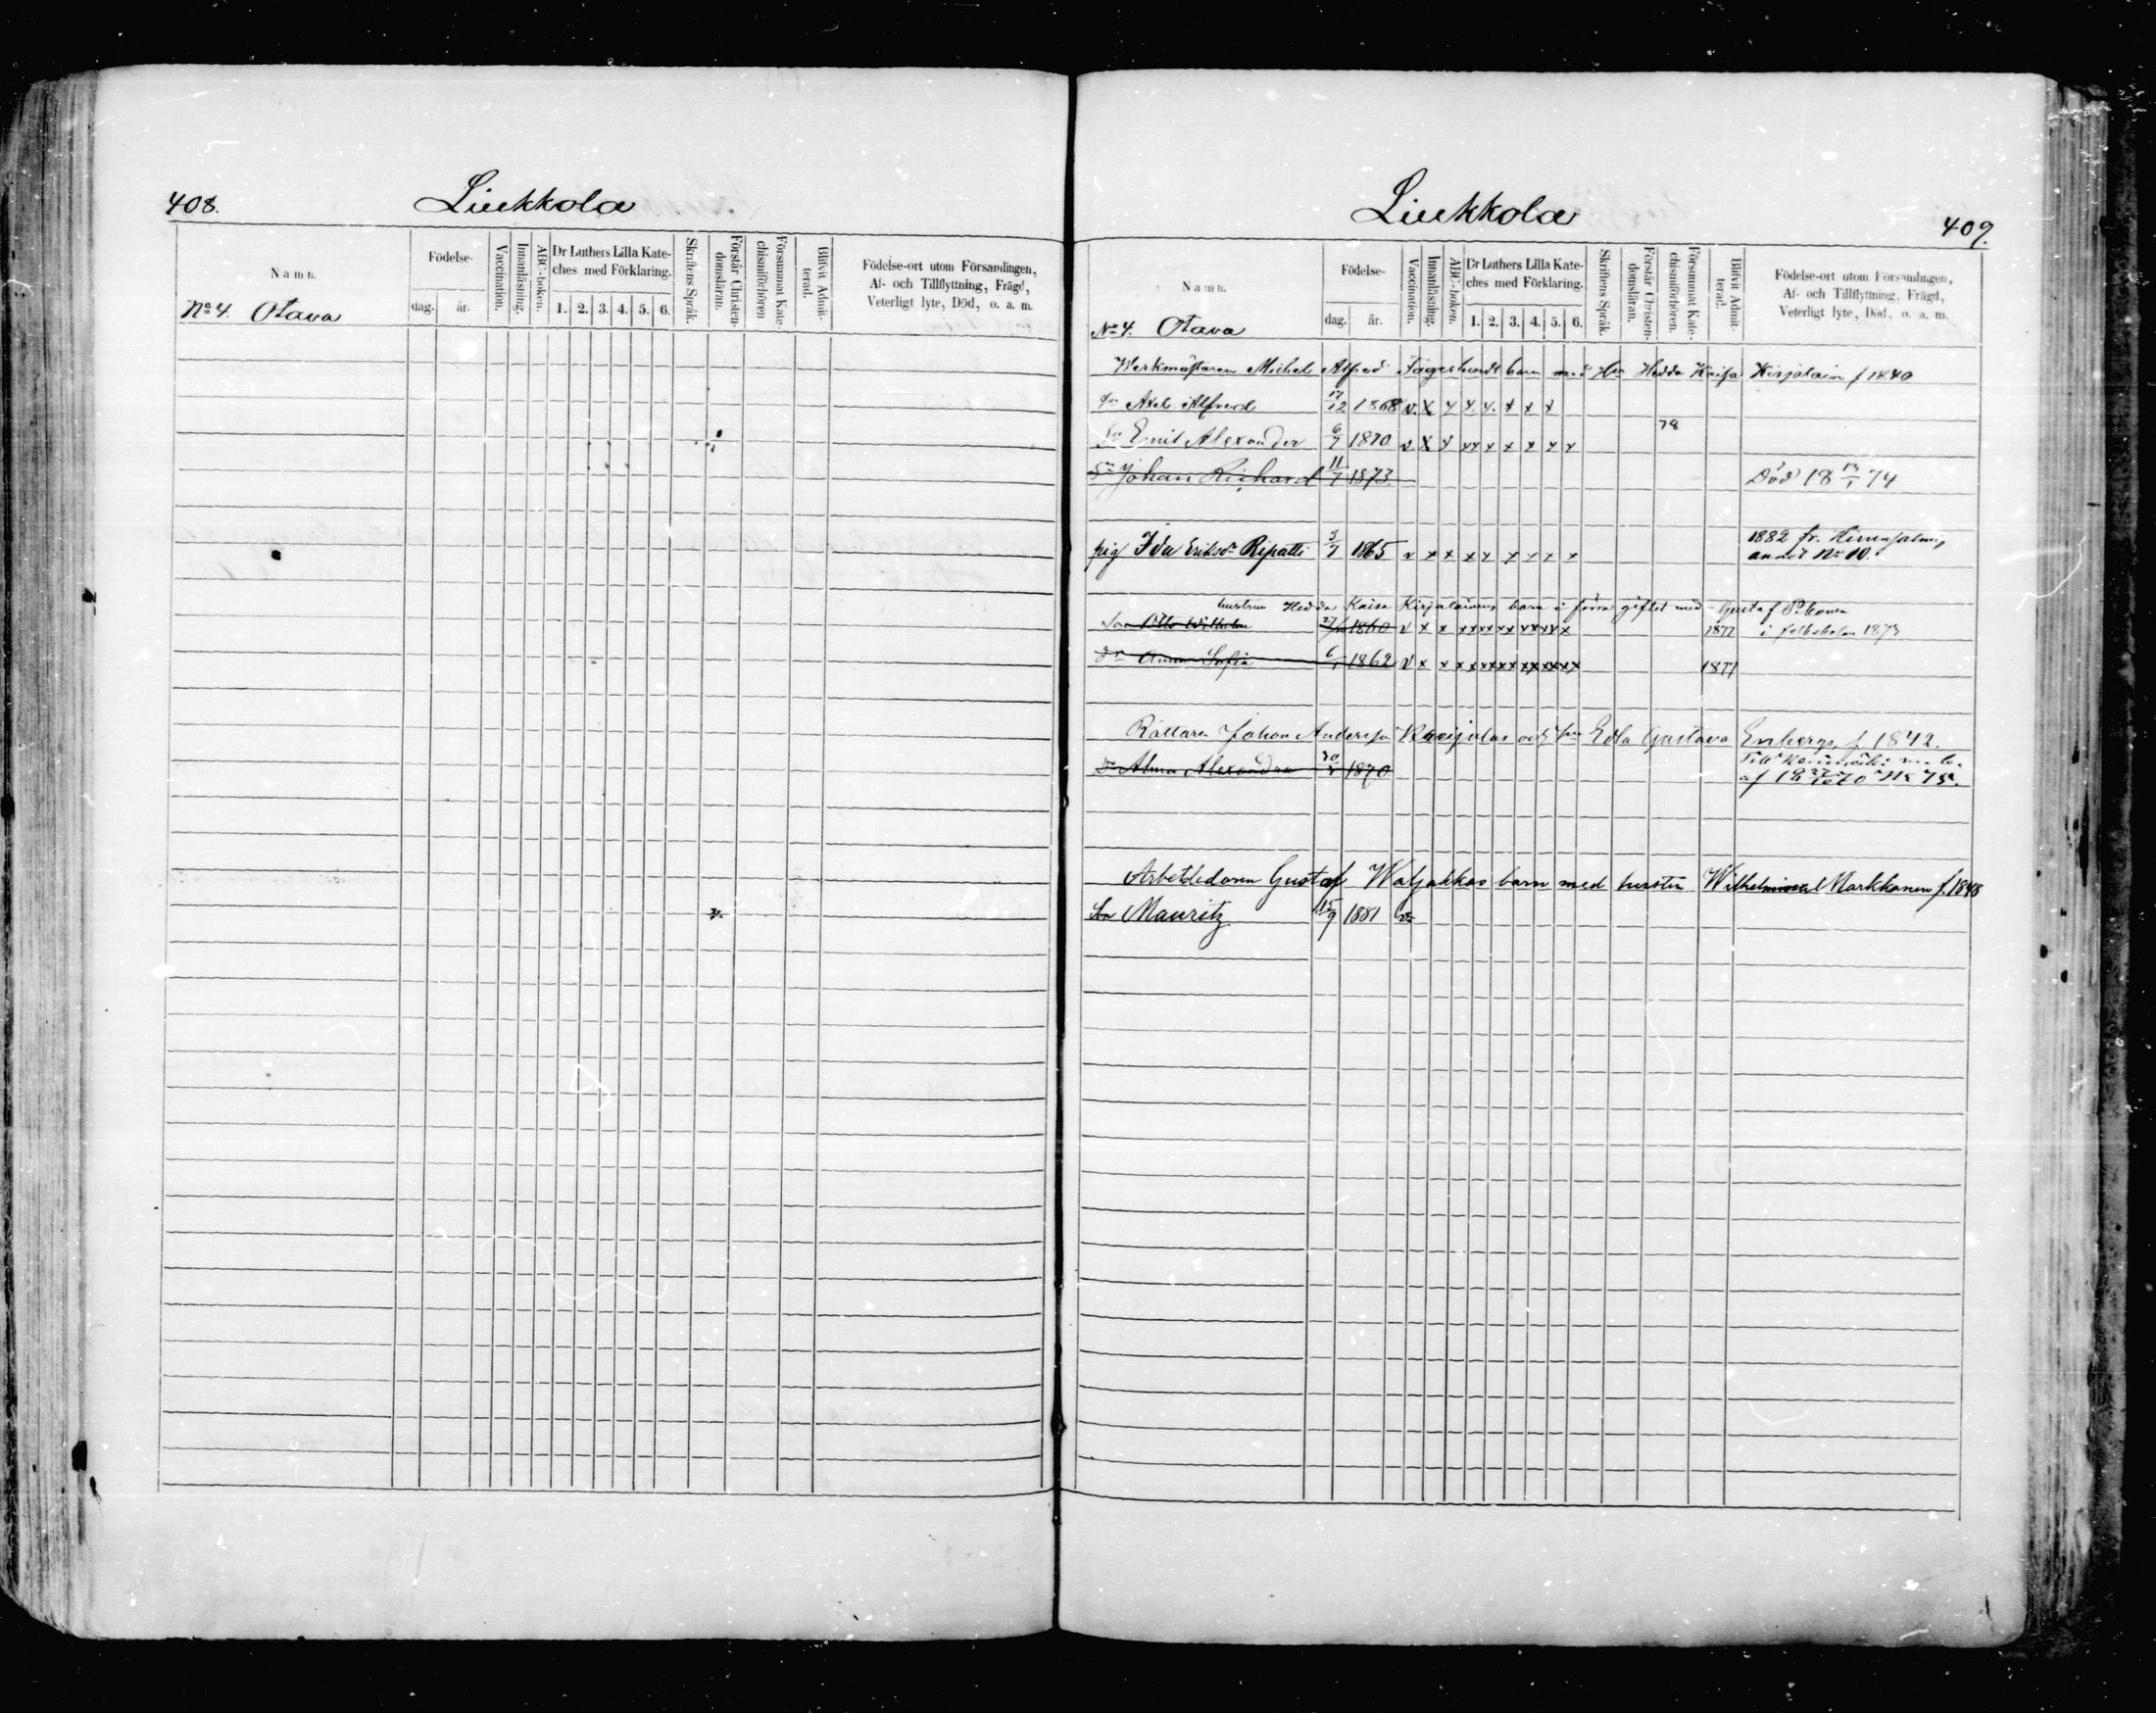 408.
Liukkola
Namn.
Födelse-
dag.
år.
Vaccination.
Innanläsning.
ABC-boken.
Dr Luthers Lilla Kate-
ches med Förklaring.
1. 2. 3. 4. 5. 6.
Skriftens Språk.
Förstår Christen-
domsläran.
Försummat Kate-
chismiförhören
Blifvit Admit-
terad.
Födelse-ort utom Församlingen,
Af- och Tillflyttning, Frägd,
Veterligt lyte, Död, o. a. m.
No 4. Otava
Liukkola
409.
Namn.
Födelse-
dag.
år.
Vaccination.
Innanläsning.
ABC-boken.
Dr Luthers Lilla Kate-
ches med Förklaring.
1. 2. 3. 4. 5. 6.
Skriftens Språk.
Förstår Christen-
domsläran.
Försummat Kate-
chismiförhören.
Blifvit Admit-
terad.
Födelse-ort utom Församlingen,
Af- och Tillflyttning, Frägd,
Veterligt lyte, Död, o. a. m.
No 4. Otava
Werkmästaren Michel Alfred Fagerlundt barn med Hu Hedda Kaisa Kirjalain f 1840
Sn Axel Alfred 17/12 1868 v. x x x x x x x
Sn Emil Alexander 6/7 1870 v x x xx x x x x x 78
Sn Johan Richard 11/7 1873. Död 18 13/1 74
pig Ida Eriksdr Ripatti 3/7 1865 v x x x x x x x x 1882 fr. Hirvensalmi,
hustrun Hedda Kaisa Kirjalainens barn i förra giftet med Gustaf
Son Otto Wilhelm 1860 v x x xx xx xx xx x x 1877 i folkskolan 1873
dr Anna Sofia 6/1 1862 v x x x x xx xx xx xx xx 1877
Rättare Johan Andersson och hu Edla Gustava Enberg f. 1842.
dr Alma Alexandra 1870
Arbetsledaren Gustaf Waljakkas barn med hustru Wilhelmina Markkanen f. 1848
Son Mauritz 15/9 1881 v